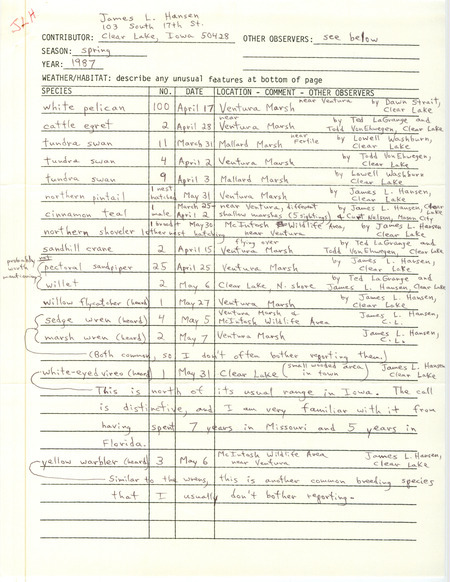 JLH
James L. Hansen
103 South 17th St.
CONTRIBUTOR: Clear Lake, Iowa 50428 OTHER OBSERVERS: see below
SEASON: spring
YEAR: 1987
WEATHER/HABITAT: describe any unusual features at bottom of page
SPECIES NO. DATE LOCATION - COMMENT - OTHER OBSERVERS
white pelican 100 April 17 Ventura Marsh near Ventura by Dawn Strait, Clear Lake
cattle egret 2 April 28 near Ventura Marsh by Ted LaGrange and Todd VonEhwegen, Clear Lake
tundra swan 11 March 31 Mallard Marsh near Fertile by Lowell Washburn, Clear Lake
tundra swan 4 April 2 Ventura Marsh by Todd VonEhwegen, Clear Lake
tundra swan 9 April 3 Mallard Marsh by Lowell Washburn Clear Lake
northern pintail 1 nest hatched May 31 Ventura Marsh by James L. Hansen, Clear Lake
cinnamon teal 1 male March 25- April 2 near Ventura, different shallow marshes (5 sightings) by James L. Hansen, Clear Lake & Curt Nelson, Mason City
northern shoveler 1 brood + other nest hatching May 30 McIntosh Wildlife Area, near Ventura by James L. Hansen Clear Lake
sandhill crane 2 April 15 flying over Ventura Marsh by Ted LaGrange and Todd VonEhwegen, Clear Lake
probably not worth mentioning
pectoral sandpiper 25 April 25 Ventura Marsh by James L. Hansen, Clear Lake
willet 2 May 6 Clear Lake N. shore by Ted LaGrange and James L. Hansen, Clear Lake
willow flycatcher (heard) 1 May 27 Ventura Marsh by James L. Hansen, Clear Lake
sedge wren (heard) 4 May 5 Ventura Marsh & McIntosh Wildlife Area James L. Hansen, C.L.
marsh wren (heard) 2 May 7 Ventura Marsh James L. Hansen, C.L.
(Both common, so I don't often bother reporting them)
white-eyed vireo (heard) 1 May 31 Clear Lake (small wooded area in town) James L. Hansen Clear Lake
This is north of its usual range in Iowa. The call
is distinctive, and I am very familiar with it from
having spent 7 years in Missouri and 5 years in
Florida.
yellow warbler (heard) 3 May 6 McIntosh Wildlife Area near Ventura James L. Hansen, Clear Lake
Similar to the wrens, this is another common breeding species
that I usually don't bother reporting.